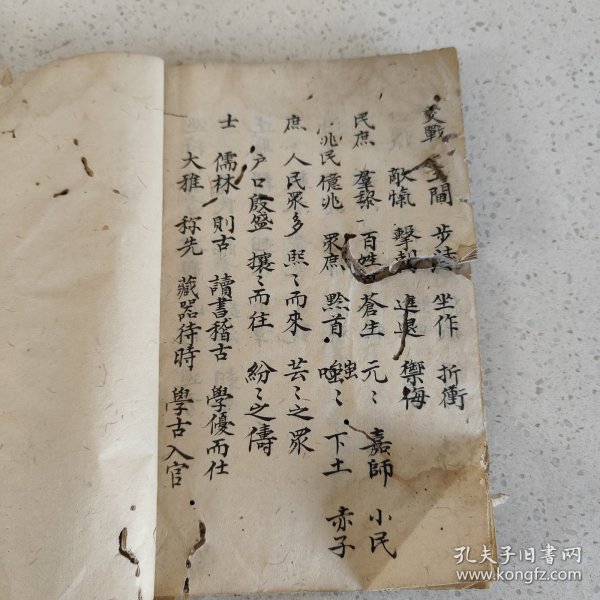 戰 間 步 坐作 折衝
敵愾 擊 進退 禦侮
民庶 羣黎 百姓 蒼生 元〻 嘉師 小民
兆民 億兆 眾庶 黔首 蚩〻 下土 赤子
庶 人民眾多 熙〻而來 芸〻之眾
戶口殷盛 攘〻而往 紛〻之儔
士 儒林 則古 讀書稽古 學優而仕
大雅 称先 藏器待時 學古入官
孔夫子旧书网
www.kongfz.com